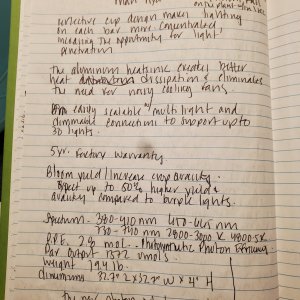 on the plant
reflective cup design makes lighting
on each bar more concentrated
increasing the opportunity for light
penetration
The aluminium heatsink creates better
heat dissipation & eliminates
the need for noisy cooling fans.
easily scalable w/ multi light and
dimmable connections to support up to
30 lights.
5 yr. Factory Warranty.
Bloom yield / Increase crop quality.
Expect up to 50% higher yield &
quality compared to purple lights.
Spectrum - 380-410 nm 450-465 nm
730-740 nm 2800-3000 K 4800-5K
PPE 2.8 mol. - Photosynthetic Photon Efficiency
Par Output 1372 umols
weight 19.4 lb.
dimensions 32.7" L x 32.7" W x 4" H